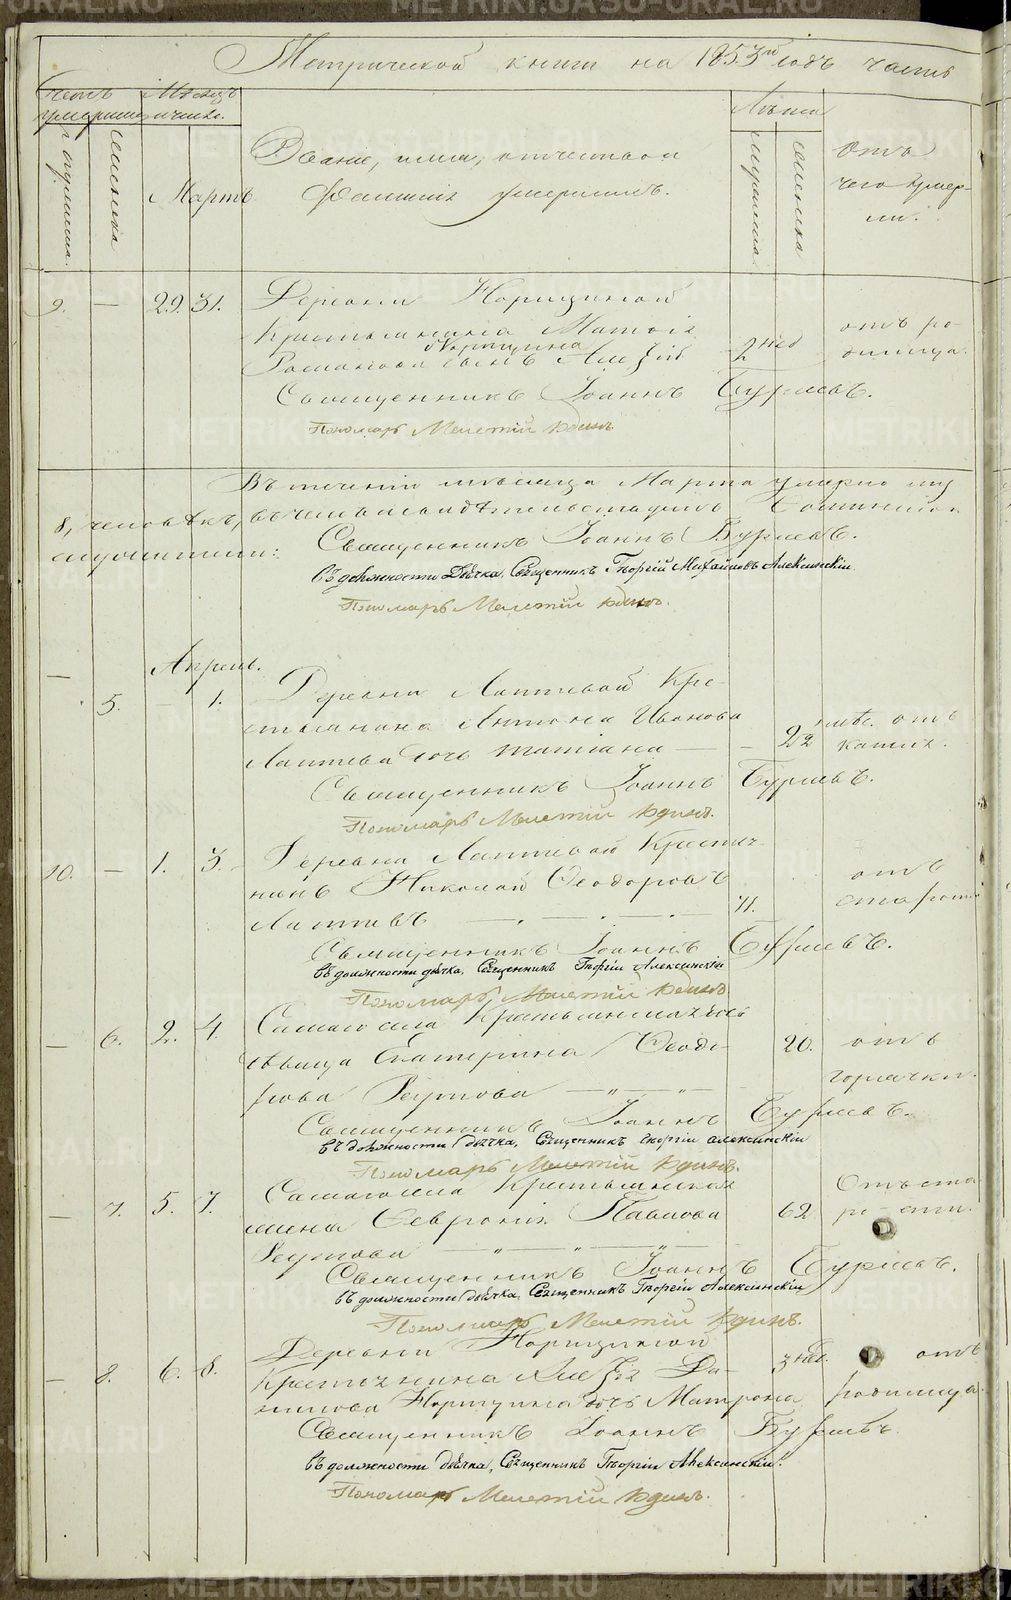 Метрической книги на 1853й годъ часть
Счетъ умершихъ
Месяцъ и число.
мужеска.
женска
Мартъ
Званіе, имя, отчество и
фамилія умершихъ.
Лѣта
мужеска
женска
Отъ
чего умер-
ли.
9. — 29. 31. Деревни Норицыной
Крестьянина Матвея
Норицина
Романова сынъ Алексѣй 2 нед отъ ро-
димца.
Священникъ Іоаннъ Бурмевъ.
Пономарь Мелетій Юдинъ
Въ теченіи месяца Марта умерло
8, человѣкъ, въ чемъ и свидѣтельствуемъ
Священникъ Іоаннъ Бурмевъ.
въ должности Дьячка, Священникъ Георгій Михайловъ Алексинскій
Пономарь Мелетій Юдинъ.
Апрель.
— 5. — 1. Деревни Лаптевой Кре-
стьянина Антона Иванова
Лаптева дочь Татіана — — 22 отъ
кашля.
Священникъ Іоаннъ Бурмевъ.
Пономарь Мелетій Юдинъ.
10. — 1. 3. Деревни Лаптевой Крестья-
нинъ Николай Ѳеодоровъ отъ
Лаптевъ 71. старости
Священникъ Іоаннъ Бурмевъ.
въ должности дьячка, Священникъ Георгій Алексинскій
Пономарь Мелетій Юдинъ
— 6. 2. 4. Самаго села Крестьянская
дѣвица Екатерина Ѳеодо- 20. отъ
рова Реутова горячки.
Священникъ Іоаннъ Бурмевъ.
въ должности дьячка, Священникъ Георгій Алексинскій
Пономарь Мелетій Юдинъ.
— 7. 5. 7. Самаго села Крестьянская
жена Февронія Павлова 62 Отъ ста-
рости.
Реутова
Священникъ Іоаннъ Бурмевъ.
въ должности дьячка, Священникъ Георгій Алексинскій
Пономарь Мелетій Юдинъ.
— 8. 6. 8. Деревни Норицыной
Крестьянина Алексѣя Да- 3 нед. отъ
нилова Норицына дочь Матрона родимца.
Священникъ Іоаннъ Бурмевъ.
въ должности дьячка, Священникъ Георгій Алексинскій.
Пономарь Мелетій Юдинъ.
METRIKI.GASO-URAL.RU